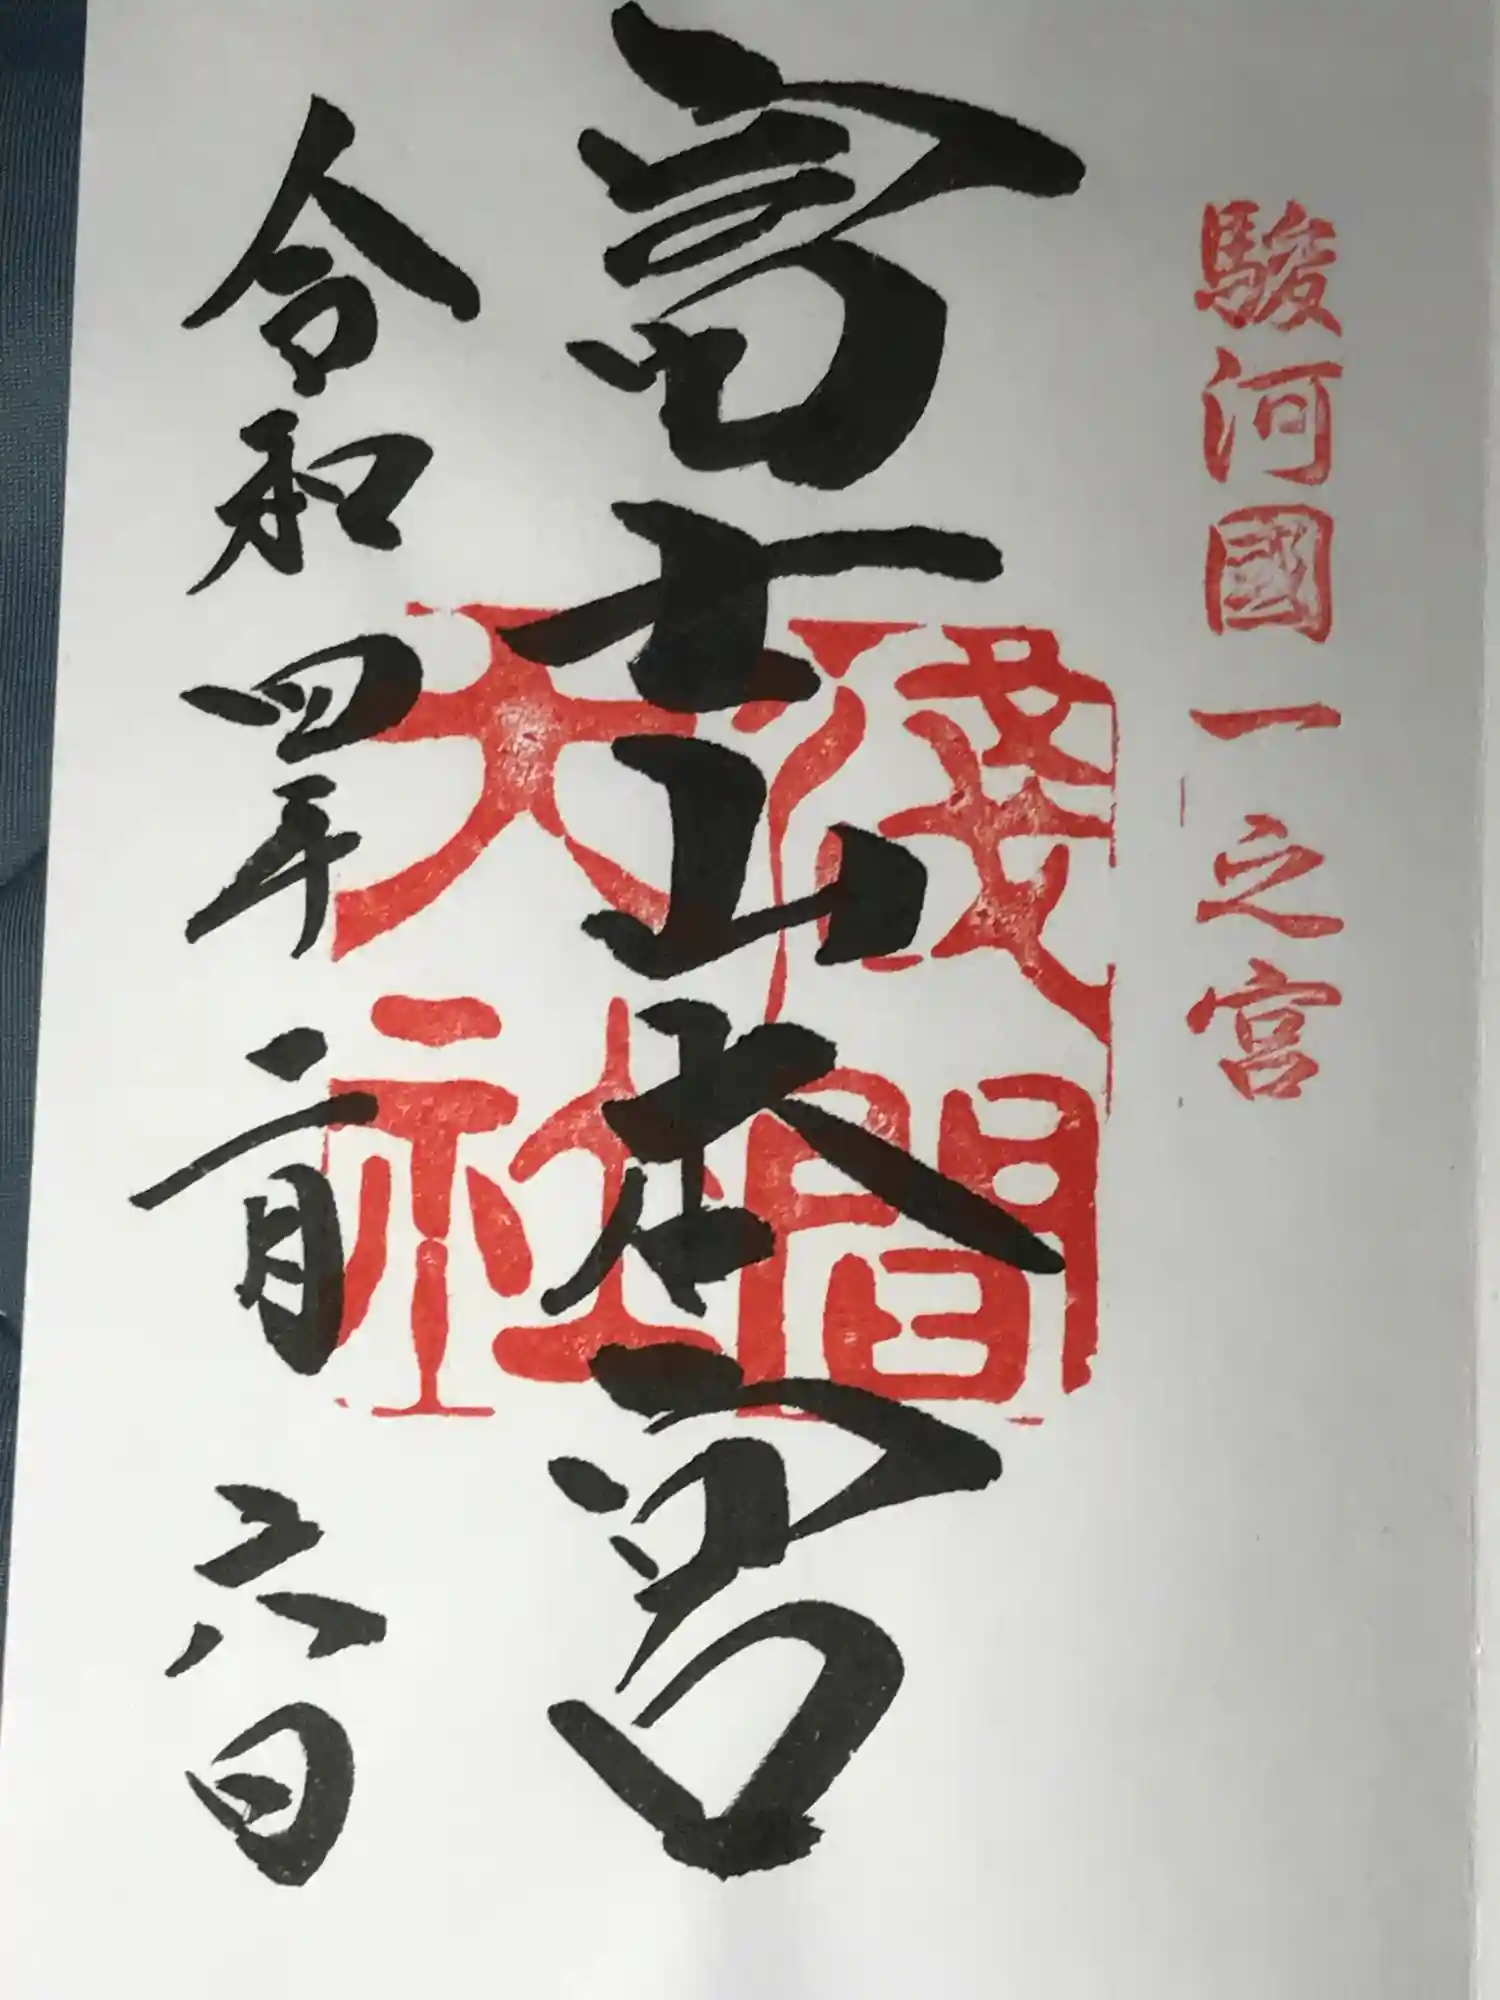 駿河國一之宮
富士山本宮
淺間大社
令和四年二月六日